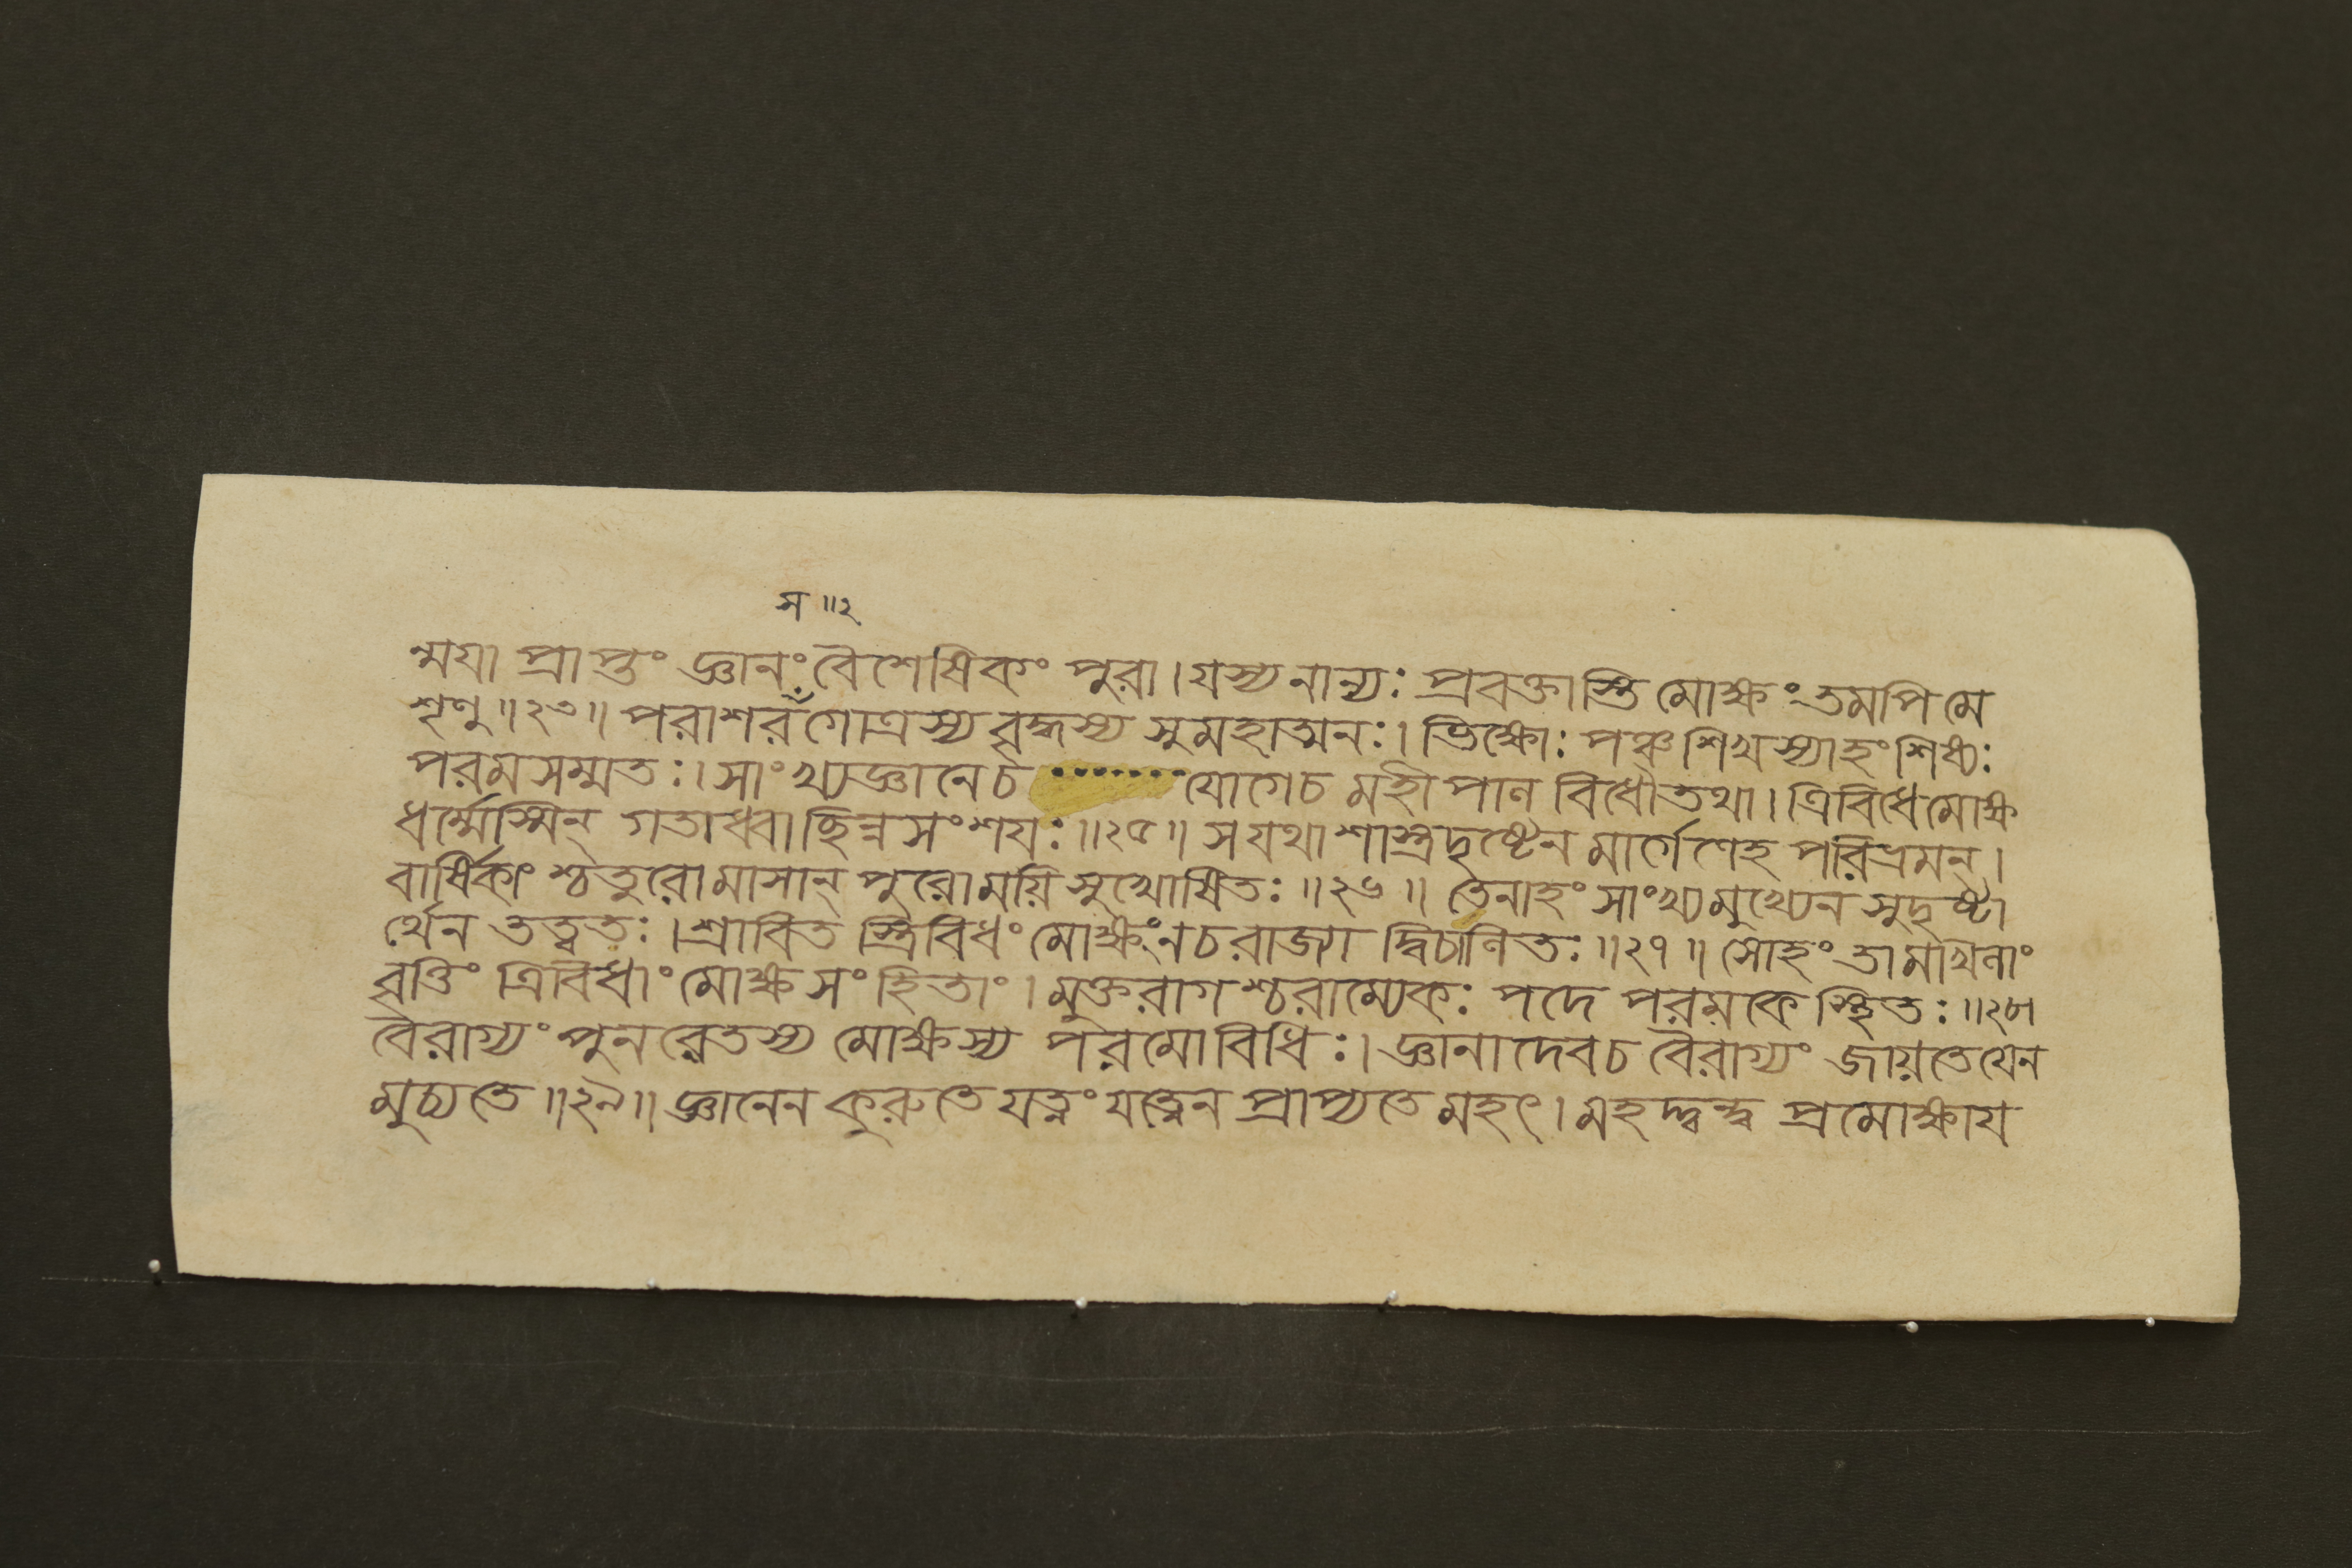 স ॥২
ন্ময়া প্রাপ্তং জ্ঞানং বৈশেষিকং পুরা। যস্য নান্যঃ প্রবক্তাস্তি মোক্ষং তমপি মে
শৃণু ॥২৩॥ পরাশরঁগোত্রস্য বৃদ্ধস্য সুমহাত্মনঃ। ভিক্ষোঃ পঞ্চশিখস্যাহং শিষ্যঃ
পরমসম্মতঃ। সাংখ্যজ্ঞানে চ ········ যোগে চ মহীপাল বিধৌ তথা। ত্রিবিধে মোক্ষ
ধর্ম্মেস্মিন্ গতাধ্বা ছিন্নসংশয়ঃ ॥২৫॥ স যথা শাস্ত্রদৃষ্টেন মার্গেণেহ পরিভ্রমন্।
বার্ষিকাংশ্চতুরো মাসান্ পুরো ময়ি সুখোষিতঃ ॥২৬॥ তেনাহং সাংখ্যমুখ্যেন সুদৃষ্টা
র্থেন তত্ত্বতঃ। শ্রাবিত স্ত্রিবিধং মোক্ষং ন চ রাজ্যা দ্বিচালিতঃ ॥২৭॥ সোহং তামখিলাং
বৃত্তিং ত্রিবিধাং মোক্ষসংহিতাং। মুক্তরাগশ্চরাম্যেকঃ পদে পরমকে স্থিতঃ ॥২৮॥
বৈরাগ্যং পুনরেতস্য মোক্ষস্য পরমো বিধিঃ। জ্ঞানাদেব চ বৈরাগ্যং জায়তে যেন
মুচ্যতে ॥২৯॥ জ্ঞানেন কুরুতে যত্নং যত্নেন প্রাপ্যতে মহৎ। মহদ্দ্বন্দ্ব প্রমোক্ষায়